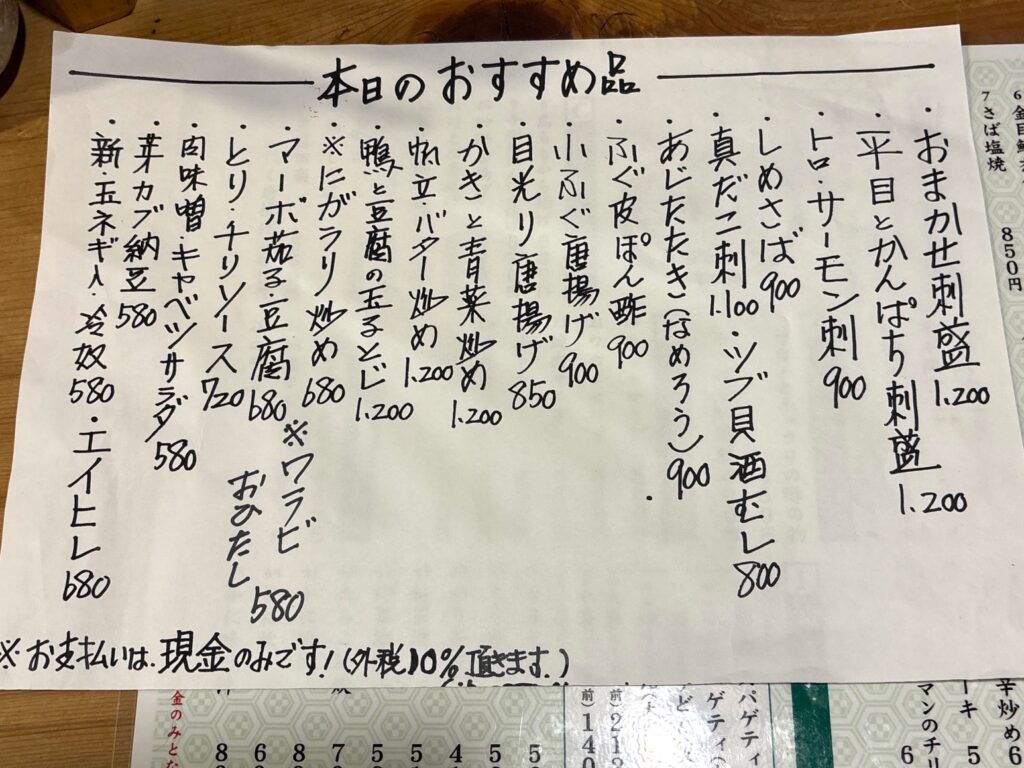 本日のおすすめ品
・おまかせ刺盛 1.200
・平目とかんぱち刺盛 1.200
・トロ・サーモン刺 900
・しめさば 900
・真だこ刺 1.100
・ツブ貝酒むし 800
・あじたたき(なめろう) 900
・ふぐ皮ぽん酢 900
・小ふぐ唐揚げ 900
・目光り唐揚げ 850
・かきと青菜炒め 1.200
・帆立・バター炒め 1.200
・鴨と豆腐の玉子とじ 1.200
※にがうり炒め 680
・マーボ茄子・豆腐 680
※ワラビおひたし 580
・とり・チリソース 720
・肉味噌・キャベツサラダ 580
・芽カブ納豆 580
・新・玉ネギ入・冷奴 580
・エイヒレ 680
※お支払いは、現金のみです!(外税)10%頂きます。)
7 さば塩焼
850円
金のみとな